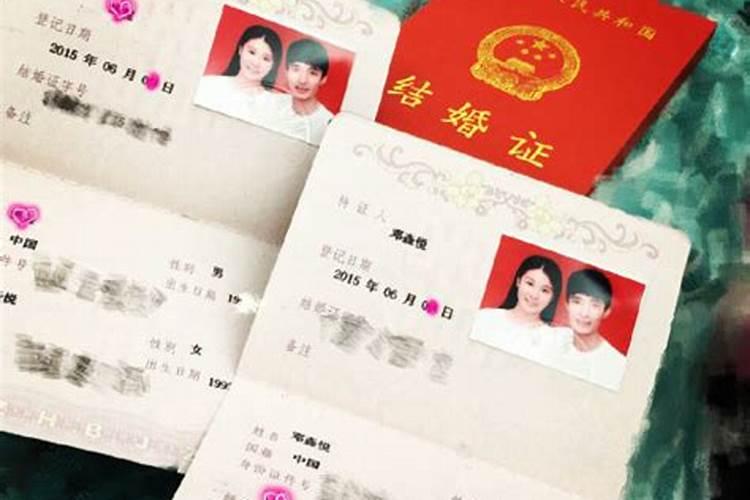 登记日期
2015 年 06 月 日
结婚证字号
备注
中国
件号
性别 男
出生日期 19
悦
性别 女
出生日期 199
人民共和国
结婚证
持证人 邓鑫悦
登记日期
2015 年 06 月 日
结婚证
备注
姓名 邓鑫悦
国籍 中国
身份证件号